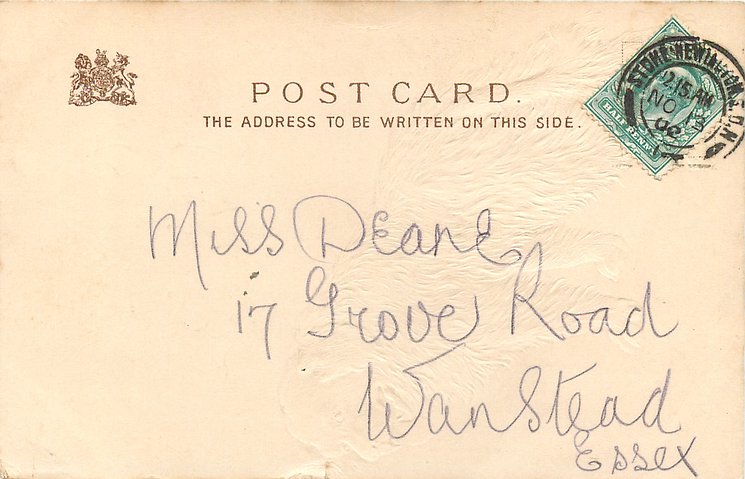 POST CARD.
THE ADDRESS TO BE WRITTEN ON THIS SIDE.
HALF PENNY
STOKE NEWINGTON
12.15 AM
NO
02
Miss Deane
17 Grove Road
Wanstead
Essex